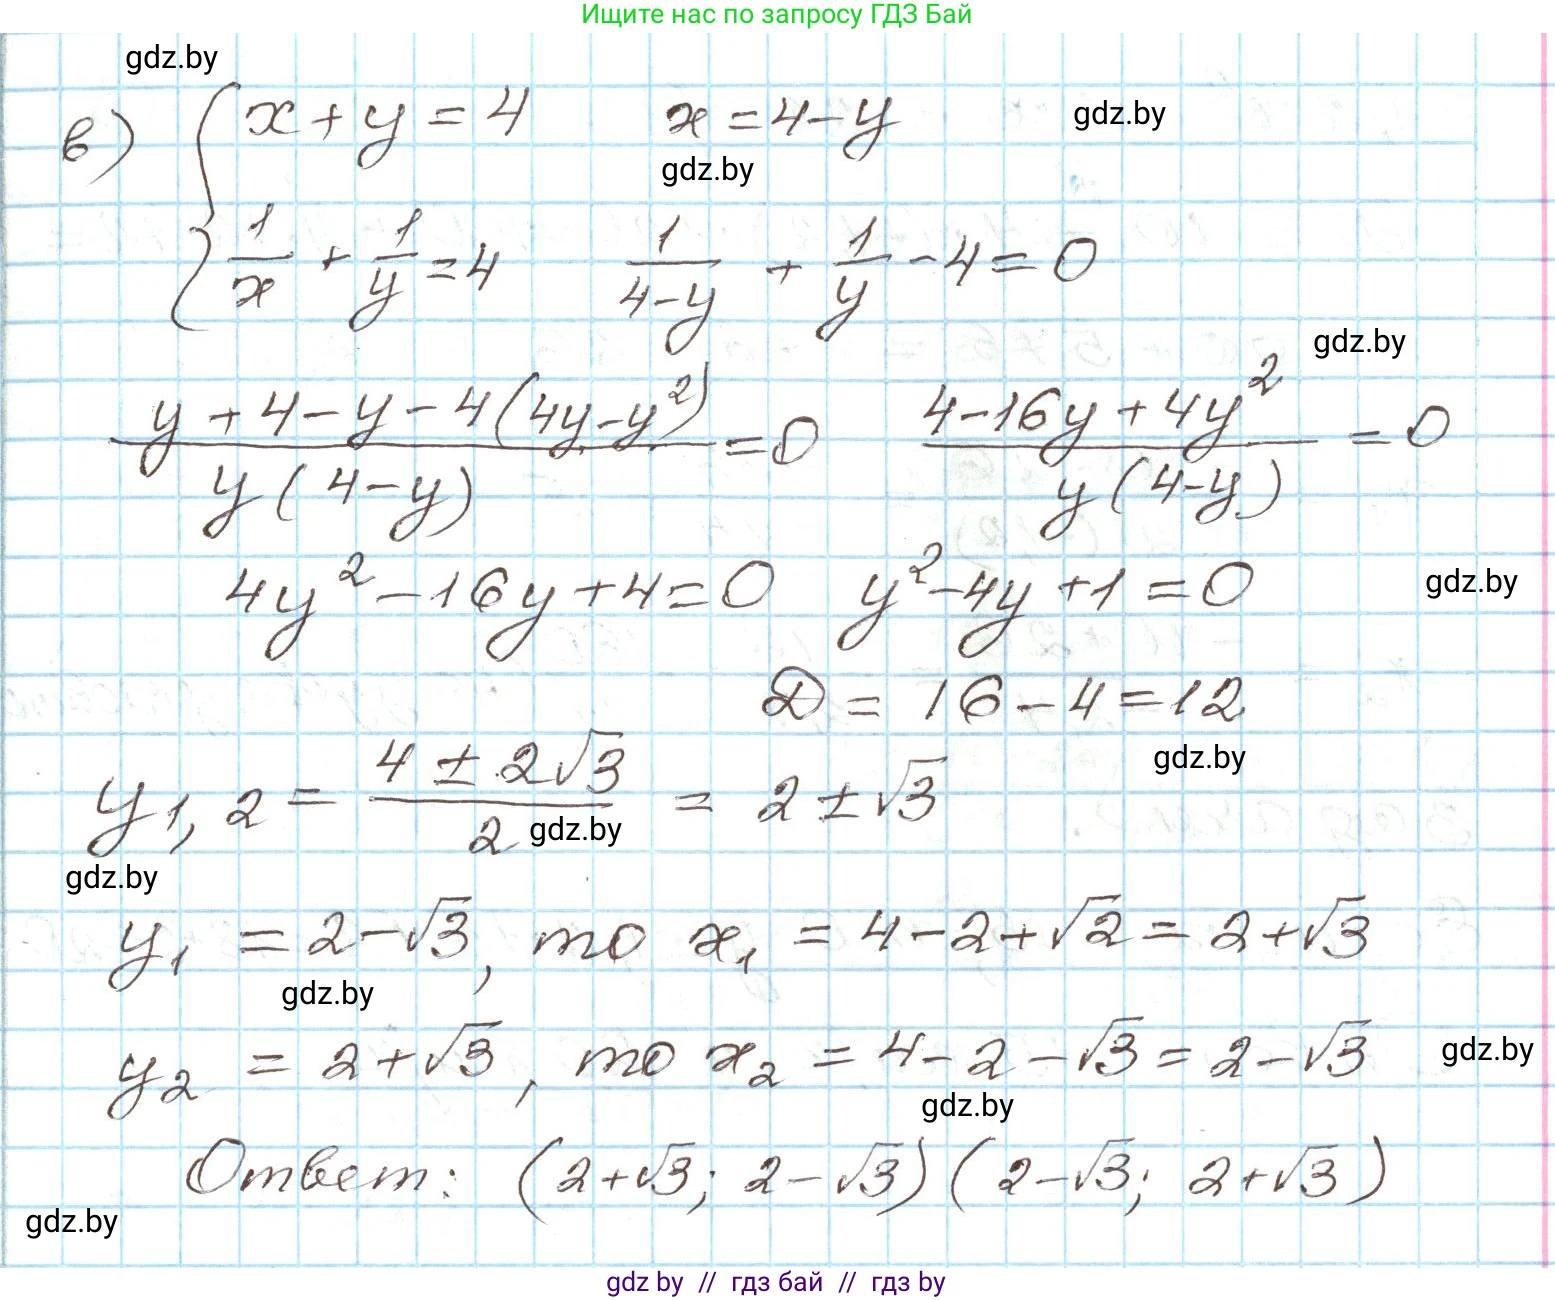 Ищите нас по запросу ГДЗ Бай
gdz.by
в) { x + y = 4    x = 4 - y
gdz.by
gdz.by
1/x + 1/y = 4    1/(4-y) + 1/y - 4 = 0
gdz.by
(y + 4 - y - 4(4y - y²))/(y(4-y)) = 0    (4 - 16y + 4y²)/(y(4-y)) = 0
4y² - 16y + 4 = 0    y² - 4y + 1 = 0
gdz.by
D = 16 - 4 = 12
gdz.by
y1,2 = (4 ± 2√3)/2 = 2 ± √3
gdz.by
gdz.by
y₁ = 2 - √3, то x₁ = 4 - 2 + √2 = 2 + √3
gdz.by
y₂ = 2 + √3, то x₂ = 4 - 2 - √3 = 2 - √3
gdz.by
gdz.by
Ответ: (2+√3; 2-√3) (2-√3; 2+√3)
gdz.by
gdz by // гдз бай // гдз by